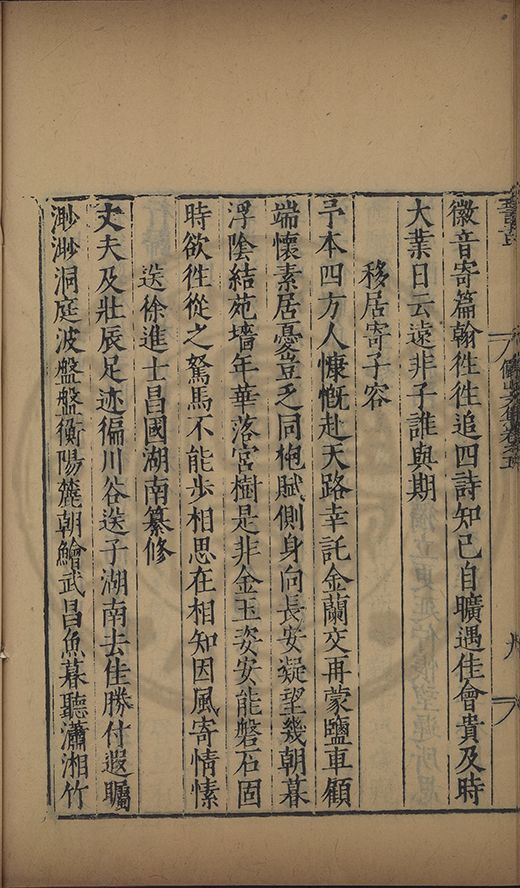 徽音寄篇翰徃徃追四詩知己自曠遇佳會貴及時
大業日云遠非子誰與期
移居寄子容
予本四方人慷慨赴天路幸託金蘭交再蒙鹽車顧
端懷素居憂豈乏同袍賦側身向長安凝望幾朝暮
浮陰結苑墻年華落宮樹是非金玉姿安能磐石固
時欲徃從之駑馬不能步相思在相知因風寄情愫
送徐進士昌國湖南纂修
丈夫及壯辰足迹徧川谷送子湖南去佳勝付遐矚
渺渺洞庭波盤盤衡陽麓朝鱠武昌魚暮聽瀟湘竹